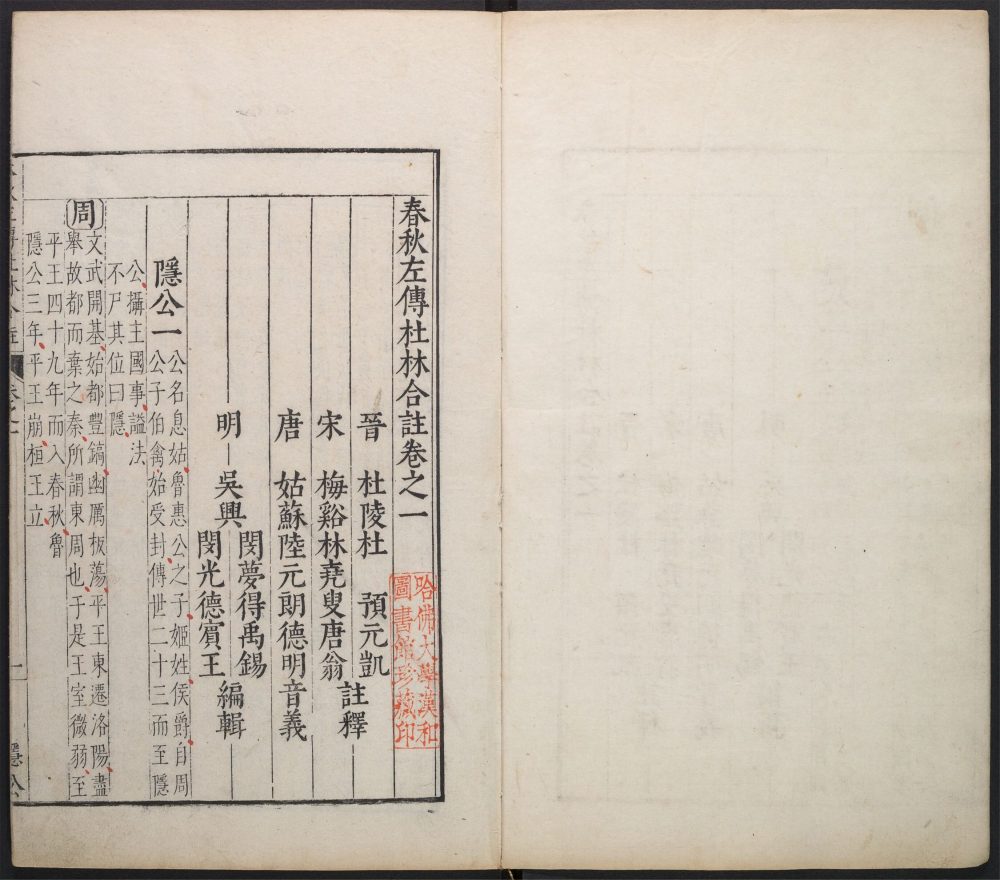 春秋左傳杜林合註卷之一
晉 杜陵杜 預元凱
宋 梅谿林堯叟唐翁
註釋
唐 姑蘇陸元朗德明音義
明 吳興
閔夢得禹錫
閔光德賓王
編輯
隱公一
公名息姑魯惠公之子姬姓侯爵自周
公子伯禽始受封傳世二十三而至隱
公攝主國事謚法
不尸其位曰隱
周
文武開基始都豐鎬幽厲板蕩平王東遷洛陽盡
舉故都而棄之秦所謂東周也于是王室微弱至
平王四十九年而入春秋魯
隱公三年平王崩桓王立
卷之一
一
隱公
哈佛大學漢和
圖書館珍藏印